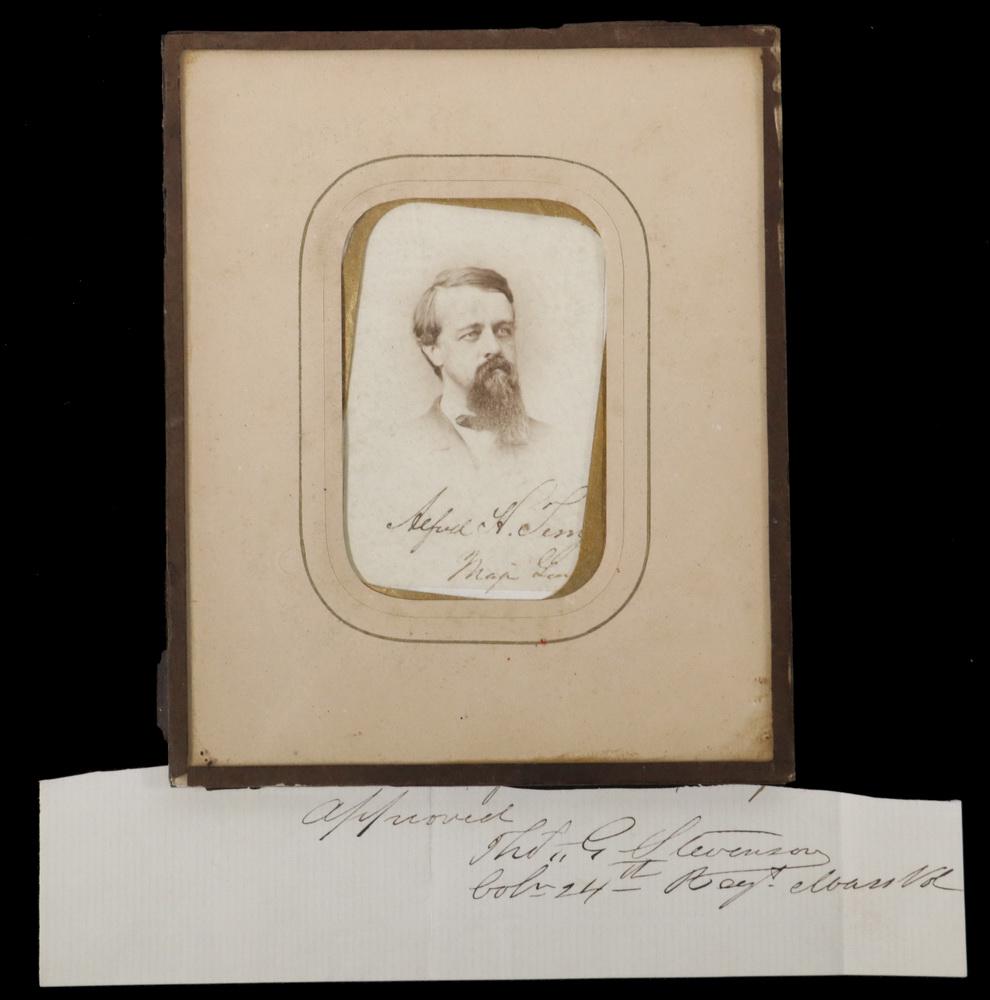 Alfred H. Terry
Maj. Gen
approved
Tho,, G Stevenson
Col 24th Regt Mass Vol